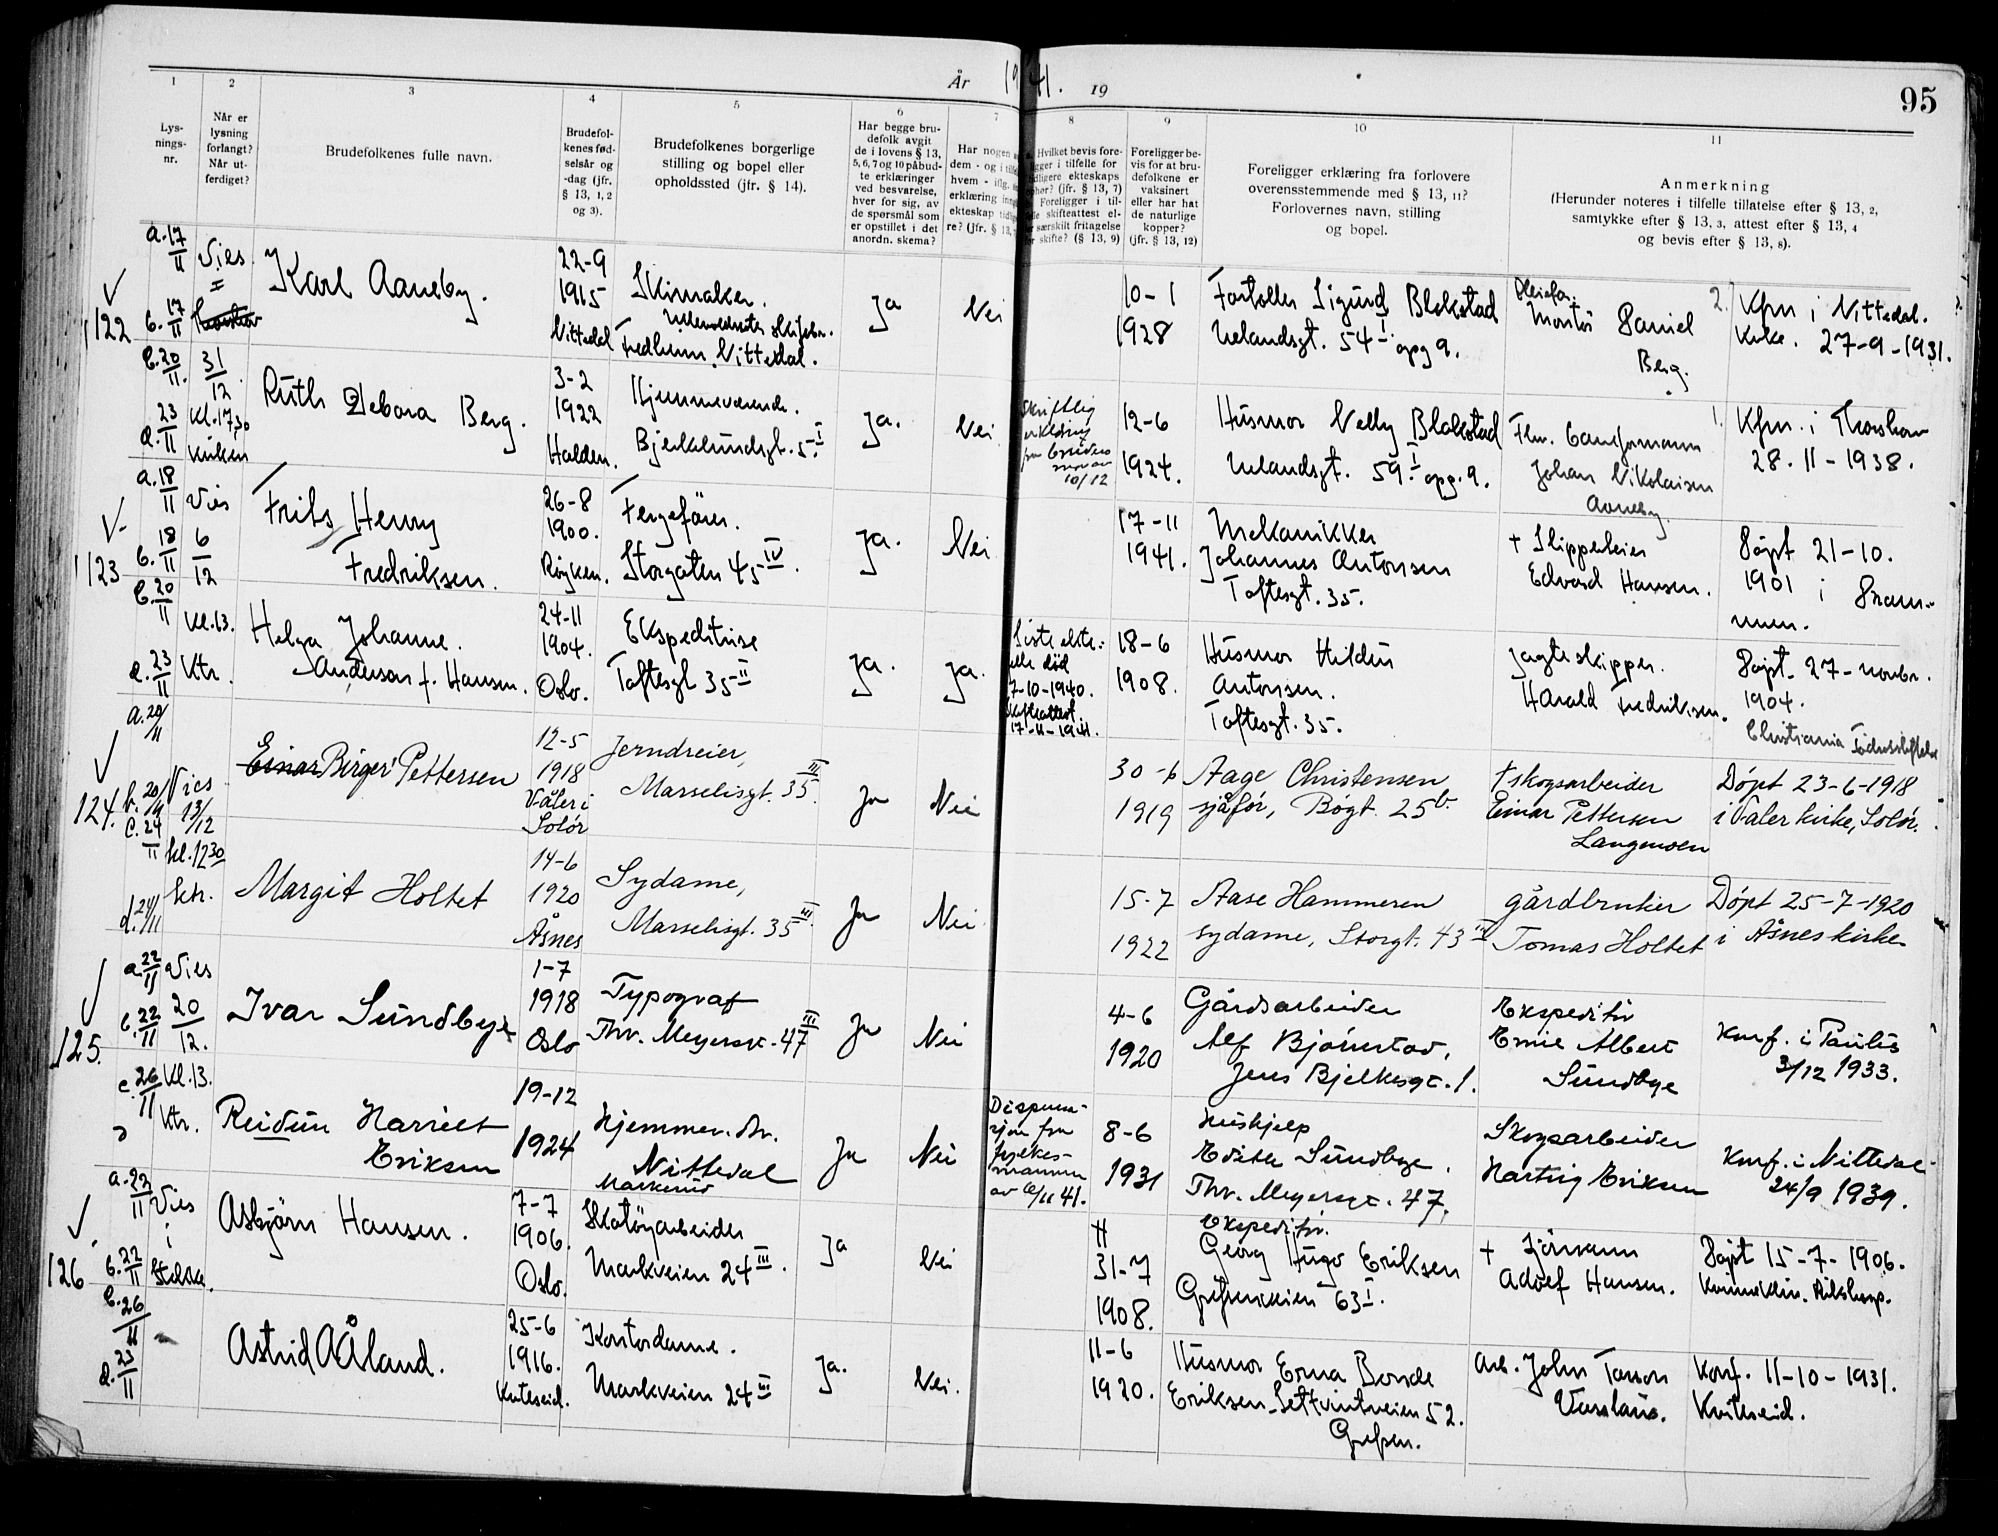 År 1941. 19
95
1
2
3
4
5
6
7
8
9
10
11
Lys-
nings-
nr.
Når er
lysning
forlangt?
Når ut-
ferdiget?
Brudefolkenes fulle navn.
Brudefol-
kenes fød-
selsår og
-dag (jfr.
§ 13, 1, 2
og 3).
Brudefolkenes borgerlige
stilling og bopel eller
opholdssted (jfr. § 14).
Har begge bru-
defolk avgit
de i lovens § 13,
5, 6, 7 og 10 påbud-
te erklæringer
ved besvarelse,
hver for sig, av
de spørsmål som
er opstillet i det
anordn. skema?
Har nogen
dem - og i
hvem - iflg.
erklæring
ekteskap
re? (jfr. § 13,
Hvilket bevis fore-
ligger i tilfelle for
tidligere ekteskaps
ophør? (jfr. § 13, 7)
Foreligger i til-
skifteattest el-
særskilt fritagelse
skifte? (§ 13, 9)
Foreligger be-
vis for at bru-
defolkene er
vaksinert
eller har hat
de naturlige
kopper?
(jfr. § 13, 12)
Foreligger erklæring fra forlovere
overensstemmende med § 13, 11?
Forlovernes navn, stilling
og bopel.
Anmerkning
(Herunder noteres i tilfelle tillatelse efter § 13, 2,
samtykke efter § 13, 3, attest efter § 13, 4
og bevis efter § 13, 8).
122
a. 17/11
b. 17/11
c. 20/11
d. 23/11
Vies
31/12
Kl. 17,30
Kirken
Karl Aaneby.
22-9
1915
Nittedal
Skimaker.
Nittedal.
Ja
Nei
10-1
1928
Sigurd Blekstad
Uelandsgt. 54 I opg 9.
Montør Daniel
Berg.
2.
Kfm i Nittedal.
Kirke. 27-9-1931.
Ruth Debora Berg.
3-2
1922
Halden.
Hjemmeværende.
Ja.
Nei
10/12
12-6
1924.
Husmor Nelly Blekstad
Uelandsgt. 59 I opg. 9.
Johan Nikolaisen
Aaneby.
1.
Kfm. i Torshov
28. 11 - 1938.
123
a. 18/11
b. 18/11
c. 20/11
d. 23/11
Vies
6/12
Kl. 13.
Ktr.
Frits Henry
Fredriksen.
26-8
1900.
Røyken.
Fergefører.
Storgaten 45 IV.
Ja.
Nei
17-11
1941.
Mekanikker
Johannes Antonsen
Toftesgt. 35.
+ Slippeeier
Edvard Hansen.
Døpt 21-10.
1901 i Dram-
men.
Helga Johanne.
Anderson f. Hansen.
24-11
1904.
Oslo.
Ekspeditrise
Toftesgt 35 II
Ja.
Ja.
Siste ekte-
felle død
7-10-1940.
Skifteattest
17-11-1941.
18-6
1908.
Husmor Hildur
Antonsen.
Toftesgt. 35.
Jagteskipper.
Harald Fredriksen.
Døpt. 27-novbr.
1904.
Christiania Fødselsstiftelse
124.
a. 20/11
b. 20/11
c. 24/11
d. 24/11
Vies
13/12
kl. 12 30
ktr.
Einar Birger Pettersen
12-5
1918
Våler i
Solør
Jerndreier,
Marselisgt. 35 III.
Ja
Nei
30-6
1919
Aage Christensen
sjåfør, Bøgt. 25 b.
+ skogsarbeider
Einar Pettersen
Langmoen
Døpt 23-6-1918
i Våler kirke, Solør.
Margit Holtet
14-6
1920
Åsnes
Sydame,
Marselisgt. 35 III.
Ja
Nei
15-7
1922
Aase Hammeren
sydame, Storgt. 43 IV
gårdbruker
Tomas Holtet
Døpt 25-7-1920
i Åsnes kirke
125.
a. 22/11
b. 22/11
c. 26/11
Vies
20/12.
Kl. 13.
Ktr.
Ivar Sundbye
1-7
1918
Oslo
Typograf
Thv. Meyersgt. 47 III
Ja
Nei
4-6
1920
Gårdsarbeider
Alf Bjørnstad,
Jens Bjelkesgt. 1.
Ekspeditør
Emil Albert
Sundbye
Konf. i Paulus
3/12 1933.
Reidun Harriet
Eriksen
19-12
1924
Hjemmev. dtr.
Nittedal
Markerud
Ja
Nei
Dispensa-
sjon fra
fylkes-
mannen
av 6/11 41.
8-6
1931
Hushjelp
Edith Sundbye.
Thv. Meyersgt. 47.
Skogsarbeider
Hartvig Eriksen
Konf. i Nittedal
24/9 1939.
126
a. 22/11
b. 22/11
c. 26/11
d. 23/11
Vies
i
Asbjørn Hansen.
7-7
1906.
Oslo.
Skotøyarbeider
Markveien 24 III.
Ja
Nei
31-7
1908.
Ekspeditør.
Georg Hugo Eriksen
Grefsenveien 63 I.
+ Sjømann
Adolf Hansen.
Døpt 15-7-1906.
Kvinneklin. Rikshosp.
Astrid Aaland.
25-6
1916.
Kviteseid.
Kontordame.
Markveien 24 III
Ja.
Nei.
11-6
1920.
Husmor Erna Bonde
Eriksen
Grefsen.
Arb. John
Konf. 11-10-1931.
Kviteseid.